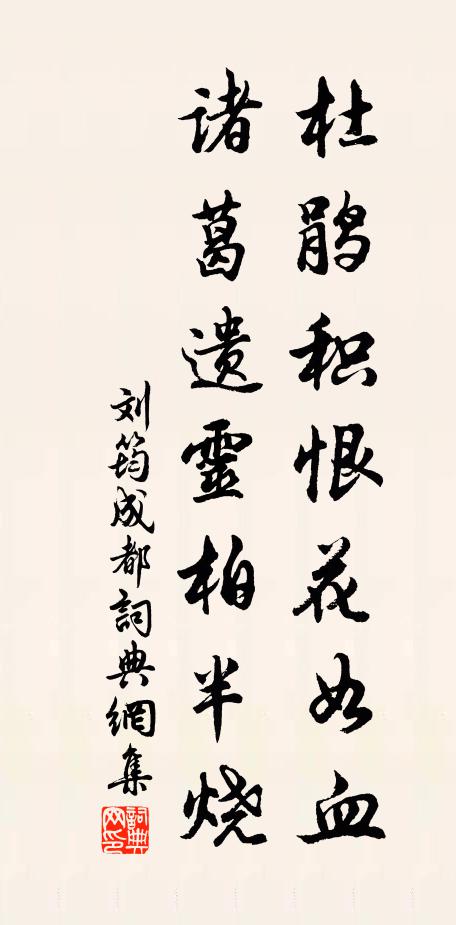 杜鹃积恨花如血
诸葛遗靈柏半烧
刘筠成都詞典網集
詞典網印